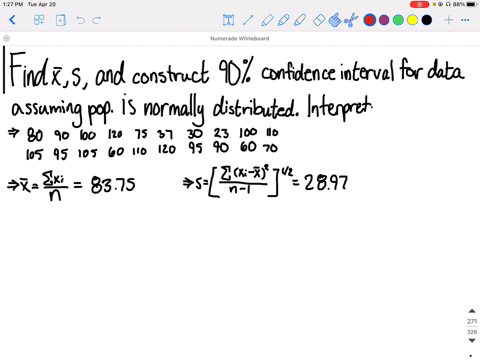 1:27 PM Tue Apr 20
88%
Numerade Whiteboard
Find x̄, s, and construct 90% confidence interval for data
assuming pop. is normally distributed. Interpret.
⇒ 80 90 100 120 75 37 30 23 100 110
105 95 105 60 110 120 95 90 60 70
⇒ x̄ = Σxi/n = 83.75 ⇒ s = [Σ(xi-x̄)²/n-1]^1/2 = 28.97
271
326